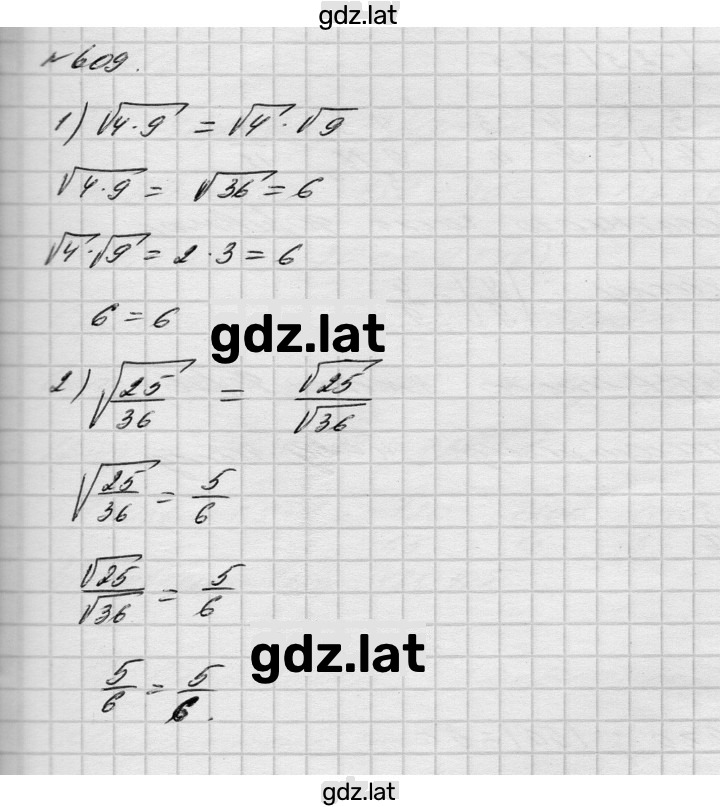 gdz.lat
№609.
1) √(4·9) = √4 · √9
√(4·9) = √36 = 6
√4·√9 = 2·3 = 6
6 = 6
gdz.lat
2) √(25/36) = √25/√36
√(25/36) = 5/6
√25/√36 = 5/6
gdz.lat
5/6 = 5/6.
gdz.lat